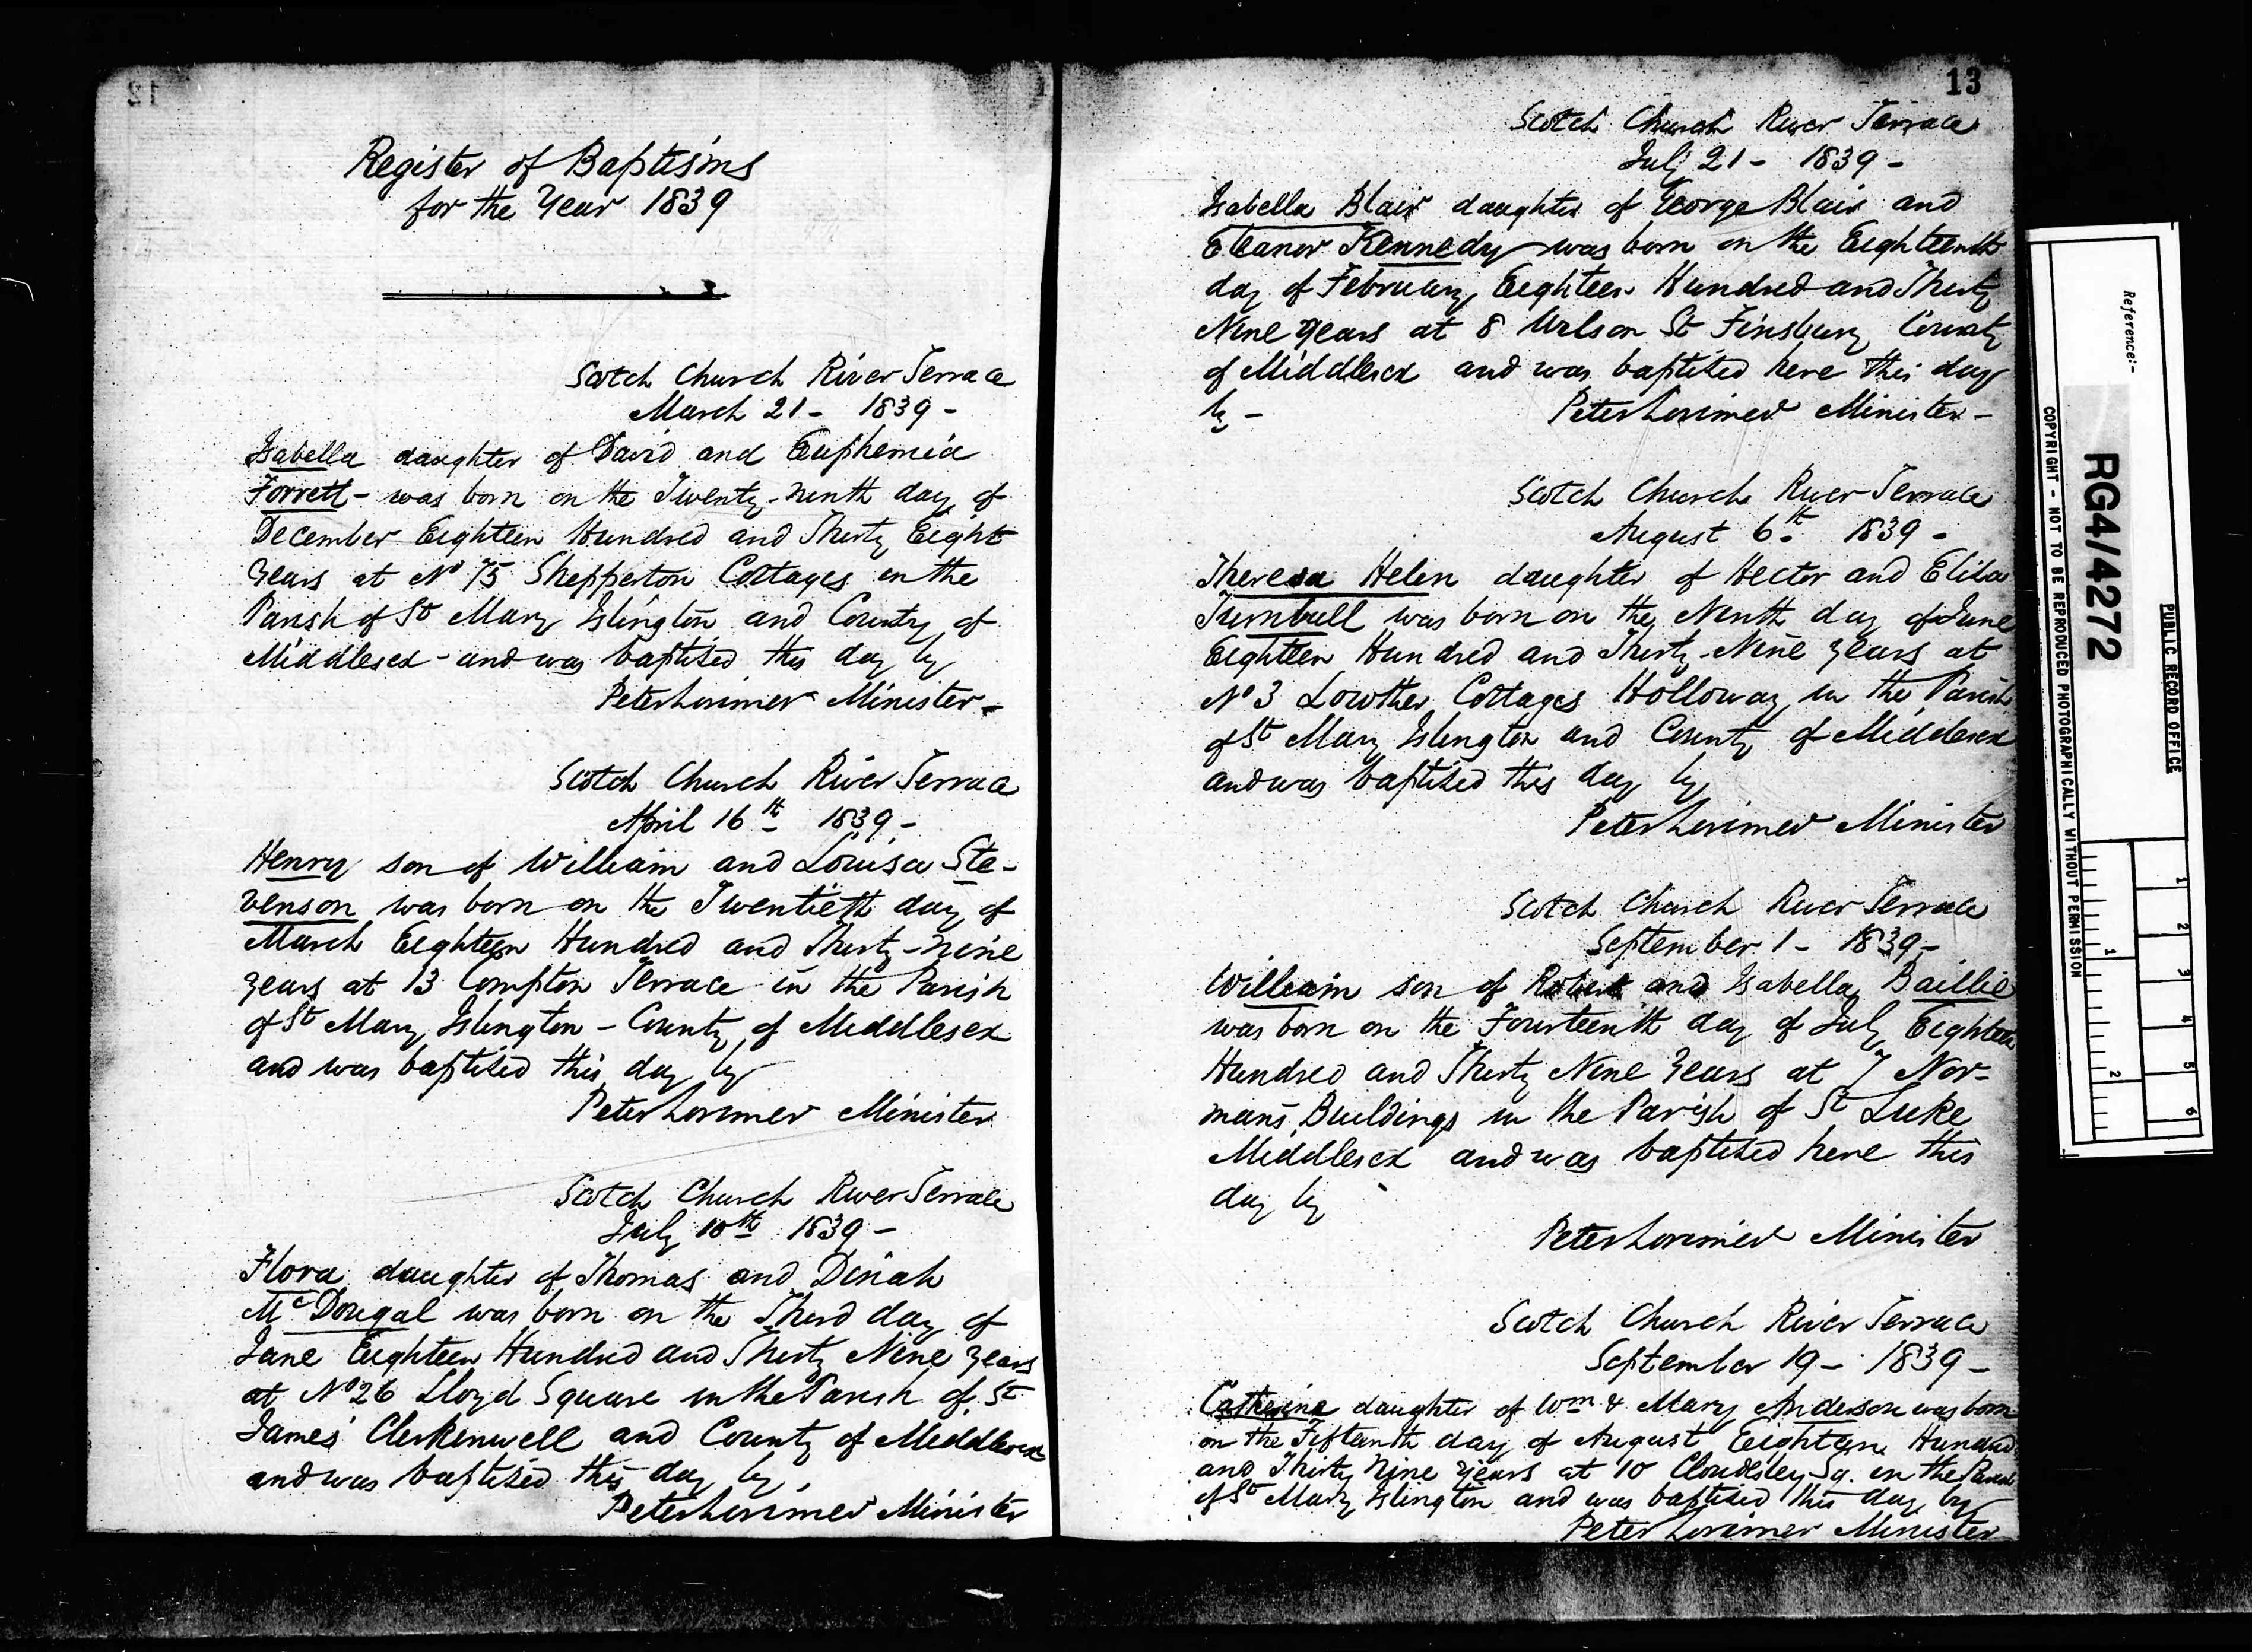 12
Register of Baptisms
for the Year 1839
Scotch Church River Terrace
March 21 - 1839 -
Isabella daughter of David and Euphemia
Forrett - was born on the Twenty-ninth day of
December Eighteen Hundred and Thirty Eight
Years at No 75 Shepperton Cottages in the
Parish of St Mary Islington and County of
Middlesex - and was baptised this day by
Peter Lorimer Minister -
Scotch Church River Terrace
April 16th 1839 -
Henry son of William and Louisa Ste-
venson was born on the Twentieth day of
March Eighteen Hundred and Thirty-nine
years at 13 Compton Terrace in the Parish
of St Mary Islington - County of Middlesex
and was baptised this day by
Peter Lorimer Minister
Scotch Church River Terrace
July 10th 1839 -
Flora daughter of Thomas and Dinah
McDougal was born on the Third day of
June Eighteen Hundred and Thirty Nine Years
at No 26 Lloyd Square in the Parish of St
James' Clerkenwell and County of Middlesex
and was baptised this day by
Peter Lorimer Minister
13
Scotch Church River Terrace
July 21 - 1839 -
Isabella Blair daughter of George Blair and
Eleanor Kennedy was born on the Eighteenth
day of February Eighteen Hundred and Thirty
Nine years at 8 Wilson St Finsbury County
of Middlesex and was baptised here this day
by - Peter Lorimer Minister -
Scotch Church River Terrace
August 6th 1839 -
Theresa Helen daughter of Hector and Eliza
Turnbull was born on the Ninth day of June
Eighteen Hundred and Thirty-Nine years at
No 3 Lowther Cottages Holloway in the Parish
of St Mary Islington and County of Middlesex
and was baptised this day by
Peter Lorimer Minister
Scotch Church River Terrace
September 1 - 1839 -
William son of Robert and Isabella Baillie
was born on the Fourteenth day of July Eighteen
Hundred and Thirty Nine Years at 7 Nor-
man's Buildings in the Parish of St Luke
Middlesex and was baptised here this
day by
Peter Lorimer Minister
Scotch Church River Terrace
September 19 - 1839 -
Catherine daughter of Wm & Mary Anderson was born
on the Fifteenth day of August Eighteen Hundred
and Thirty Nine years at 10 Cloudsley Sq. in the Parish
of St Mary Islington and was baptised this day by
Peter Lorimer Minister
Reference:-
PUBLIC RECORD OFFICE
RG4/4272
COPYRIGHT - NOT TO BE REPRODUCED PHOTOGRAPHICALLY WITHOUT PERMISSION
1 2 3 4 5 6
1 2